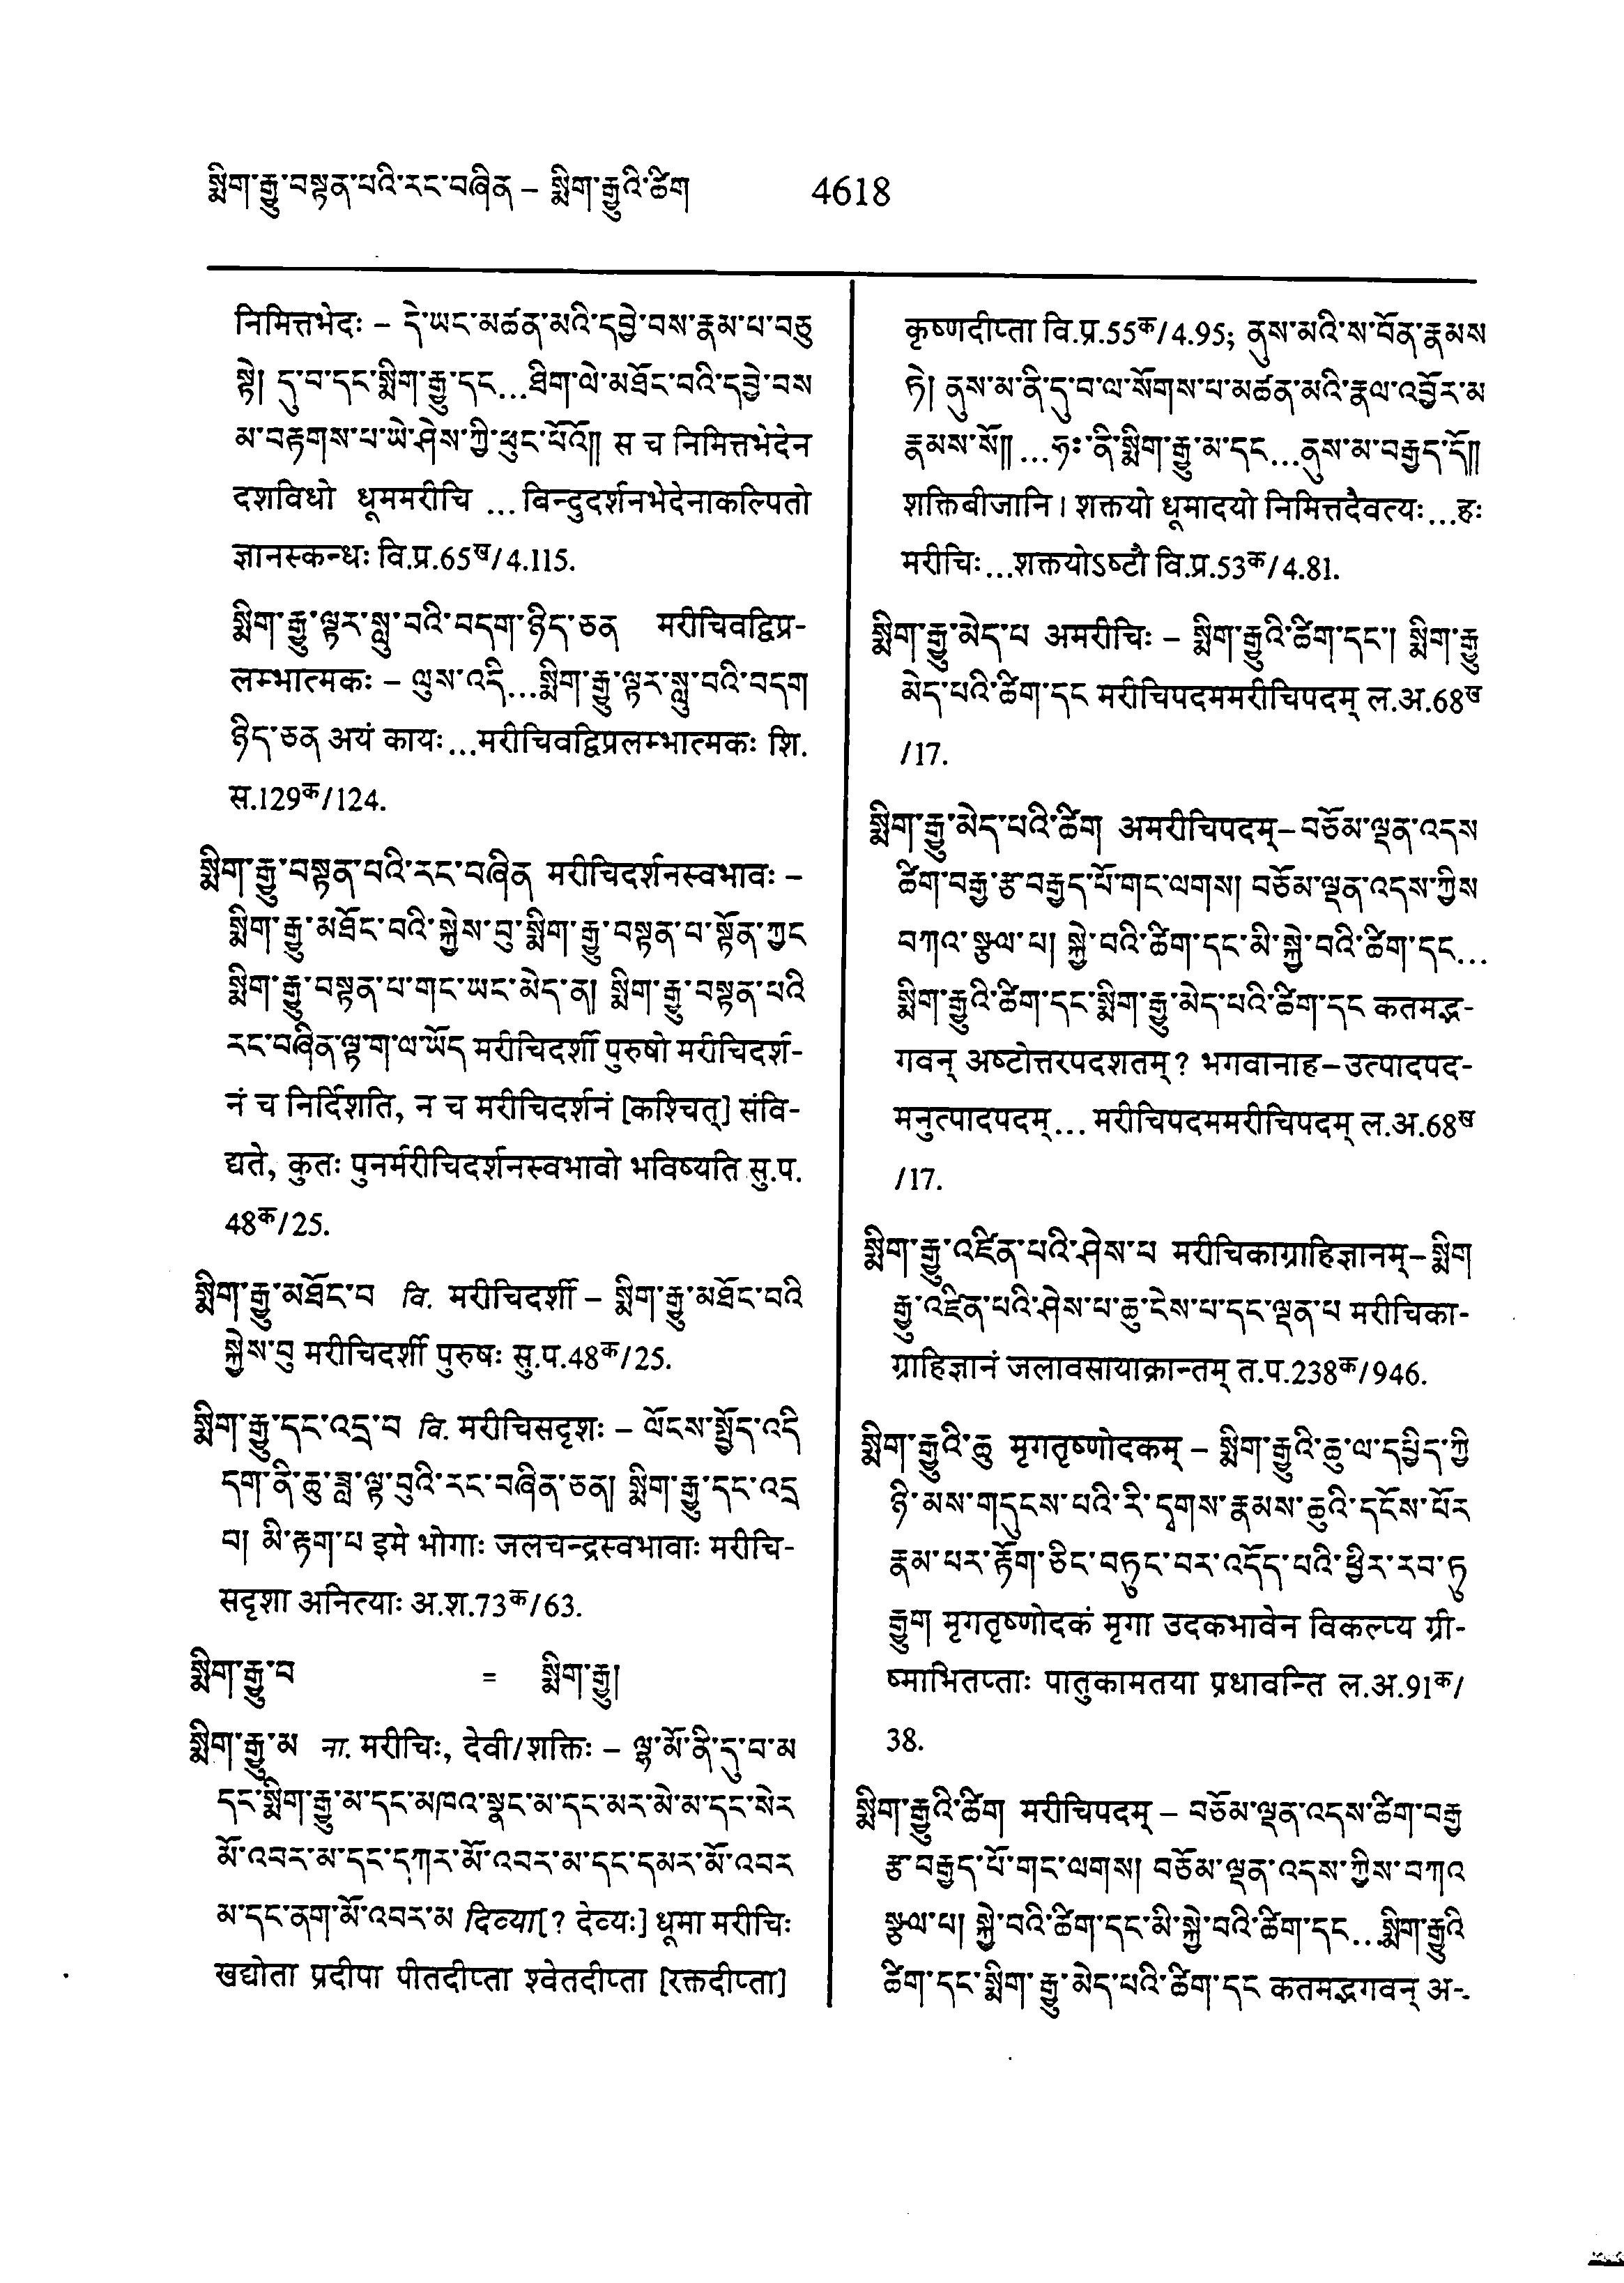 སྨིག་རྒྱུ་བསྟན་པའི་རང་བཞིན – སྨིག་རྒྱུའི་ཚིག 4618
निमित्तभेदः – དེ་ཡང་མཚན་མའི་དབྱེ་བས་རྣམ་པ་བཅུ
སྟེ། དུ་བ་དང་སྨིག་རྒྱུ་དང...ཐིག་ལེ་མཐོང་བའི་དབྱེ་བས
མ་བརྟགས་པ་ཡེ་ཤེས་ཀྱི་ཕུང་པོའོ།། स च निमित्तभेदेन
दशविधो धूममरीचि ... बिन्दुदर्शनभेदेनाकल्पितो
ज्ञानस्कन्धः वि.प्र.65ख/4.115.
སྨིག་རྒྱུ་ལྟར་སླུ་བའི་བདག་ཉིད་ཅན मरीचिवद्विप्र-
लम्भात्मकः – ལུས་འདི...སྨིག་རྒྱུ་ལྟར་སླུ་བའི་བདག
ཉིད་ཅན अयं कायः...मरीचिवद्विप्रलम्भात्मकः शि.
स.129क/124.
སྨིག་རྒྱུ་བསྟན་པའི་རང་བཞིན मरीचिदर्शनस्वभावः –
སྨིག་རྒྱུ་མཐོང་བའི་སྐྱེས་བུ་སྨིག་རྒྱུ་བསྟན་པ་སྟོན་ཀྱང
སྨིག་རྒྱུ་བསྟན་པ་གང་ཡང་མེད་ན། སྨིག་རྒྱུ་བསྟན་པའི
རང་བཞིན་ལྟ་ག་ལ་ཡོད मरीचिदर्शी पुरुषो मरीचिदर्श-
नं च निर्दिशति, न च मरीचिदर्शनं [कश्चित्] संवि-
द्यते, कुतः पुनर्मरीचिदर्शनस्वभावो भविष्यति सु.प.
48क/25.
སྨིག་རྒྱུ་མཐོང་བ वि. मरीचिदर्शी – སྨིག་རྒྱུ་མཐོང་བའི
སྐྱེས་བུ मरीचिदर्शी पुरुषः सु.प.48क/25.
སྨིག་རྒྱུ་དང་འདྲ་བ वि. मरीचिसदृशः – ལོངས་སྤྱོད་འདི
དག་ནི་ཆུ་ཟླ་ལྟ་བུའི་རང་བཞིན་ཅན། སྨིག་རྒྱུ་དང་འདྲ
བ། མི་རྟག་པ इमे भोगाः जलचन्द्रस्वभावाः मरीचि-
सदृशा अनित्याः अ.श.73क/63.
སྨིག་རྒྱུ་བ = སྨིག་རྒྱུ།
སྨིག་རྒྱུ་མ ना. मरीचिः, देवी/शक्तिः – ལྷ་མོ་ནི་དུ་བ་མ
དང་སྨིག་རྒྱུ་མ་དང་མཁའ་སྣང་མ་དང་མར་མེ་མ་དང་སེར
མོ་འབར་མ་དང་དཀར་མོ་འབར་མ་དང་དམར་མོ་འབར
མ་དང་ནག་མོ་འབར་མ दिव्या[? देव्यः] धूमा मरीचिः
खद्योता प्रदीपा पीतदीप्ता श्वेतदीप्ता [रक्तदीप्ता]
कृष्णदीप्ता वि.प्र.55क/4.95; ནུས་མའི་ས་བོན་རྣམས
ཏེ། ནུས་མ་ནི་དུ་བ་ལ་སོགས་པ་མཚན་མའི་རྣལ་འབྱོར་མ
རྣམས་སོ།། ...ཧཿ་ནི་སྨིག་རྒྱུ་མ་དང...ནུས་མ་བརྒྱད་དོ།།
शक्तिबीजानि। शक्तयो धूमादयो निमित्तदैवत्यः...हः
मरीचिः...शक्तयोऽष्टौ वि.प्र.53क/4.81.
སྨིག་རྒྱུ་མེད་པ अमरीचिः – སྨིག་རྒྱུའི་ཚིག་དང་། སྨིག་རྒྱུ
མེད་པའི་ཚིག་དང मरीचिपदममरीचिपदम् ल.अ.68ख
/17.
སྨིག་རྒྱུ་མེད་པའི་ཚིག अमरीचिपदम्–བཅོམ་ལྡན་འདས
ཚིག་བརྒྱ་རྩ་བརྒྱད་པོ་གང་ལགས། བཅོམ་ལྡན་འདས་ཀྱིས
བཀའ་སྩལ་པ། སྐྱེ་བའི་ཚིག་དང་མི་སྐྱེ་བའི་ཚིག་དང...
སྨིག་རྒྱུའི་ཚིག་དང་སྨིག་རྒྱུ་མེད་པའི་ཚིག་དང कतमद्भ-
गवन् अष्टोत्तरपदशतम्? भगवानाह–उत्पादपद-
मनुत्पादपदम्... मरीचिपदममरीचिपदम् ल.अ.68ख
/17.
སྨིག་རྒྱུ་འཛིན་པའི་ཤེས་པ मरीचिकाग्राहिज्ञानम्–སྨིག
རྒྱུ་འཛིན་པའི་ཤེས་པ་ཆུ་ངེས་པ་དང་ལྡན་པ मरीचिका-
ग्राहिज्ञानं जलावसायाक्रान्तम् त.प.238क/946.
སྨིག་རྒྱུའི་ཆུ मृगतृष्णोदकम् – སྨིག་རྒྱུའི་ཆུ་ལ་དཔྱིད་ཀྱི
ཉི་མས་གདུངས་པའི་རི་དྭགས་རྣམས་ཆུའི་དངོས་པོར
རྣམ་པར་རྟོག་ཅིང་བཏུང་བར་འདོད་པའི་ཕྱིར་རབ་ཏུ
རྒྱུག मृगतृष्णोदकं मृगा उदकभावेन विकल्प्य ग्री-
ष्माभितप्ताः पातुकामतया प्रधावन्ति ल.अ.91क/
38.
སྨིག་རྒྱུའི་ཚིག मरीचिपदम् – བཅོམ་ལྡན་འདས་ཚིག་བརྒྱ
རྩ་བརྒྱད་པོ་གང་ལགས། བཅོམ་ལྡན་འདས་ཀྱིས་བཀའ
སྩལ་པ། སྐྱེ་བའི་ཚིག་དང་མི་སྐྱེ་བའི་ཚིག་དང...སྨིག་རྒྱུའི
ཚིག་དང་སྨིག་རྒྱུ་མེད་པའི་ཚིག་དང कतमद्भगवन् अ-